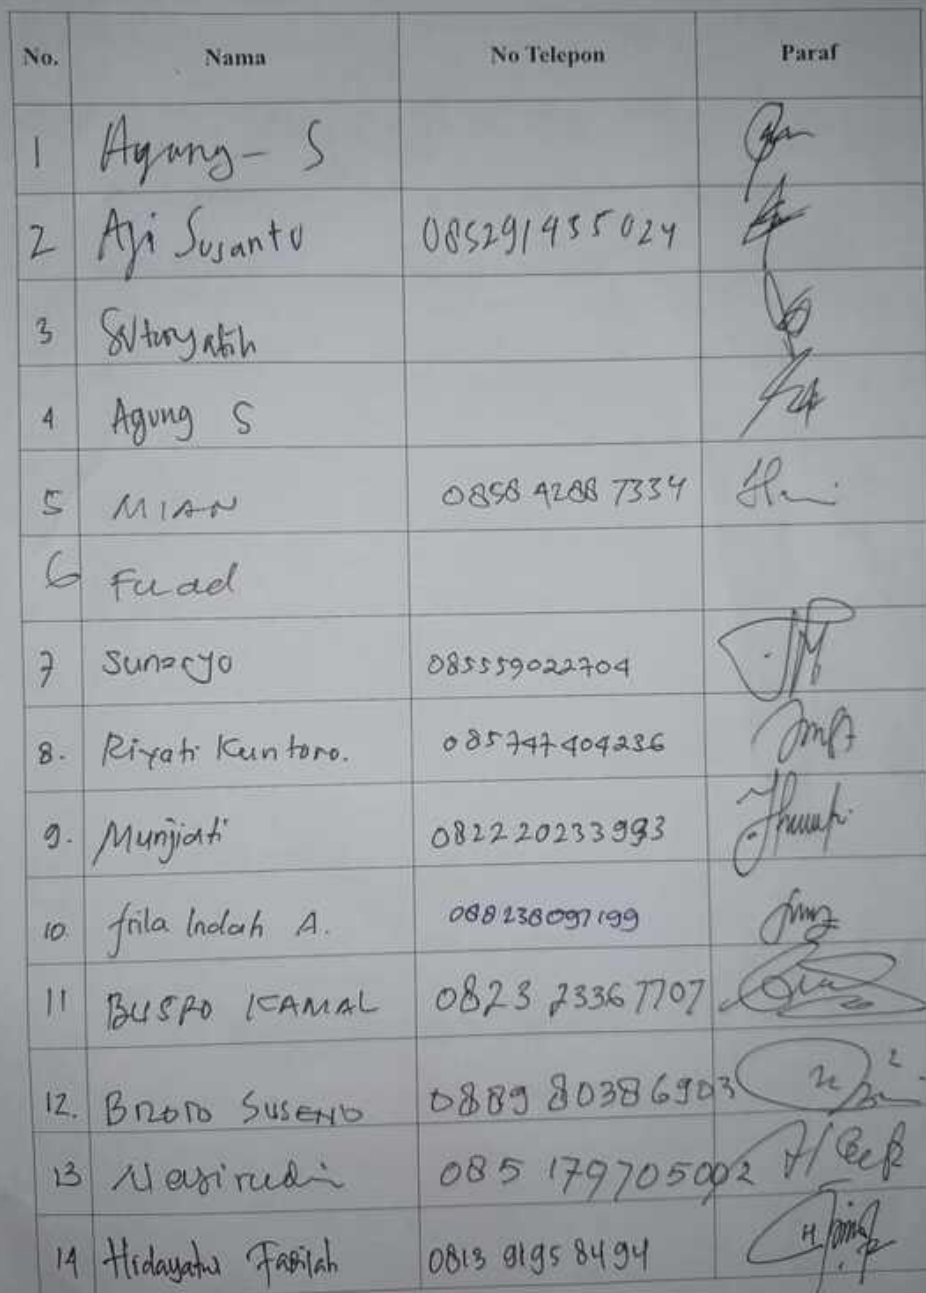 No. Nama No Telepon Paraf
1 Agung - S
2 Aji Susanto 085291935024
3
4 Agung S
5 MIAN 0858 4288 7334
6 Fuad
7 Sunaryo 085559022704
8. Riyati Kuntoro. 085747404236
9. Munjiati 082220233993
10. frila Indah A. 088238097199
11 BUSRO KAMAL 0823 23367707
12. BROTO SUSENO 0889 80386903
13 Nasirudin 085 179705002
14 Hidayatul Fadilah 0813 9195 8494